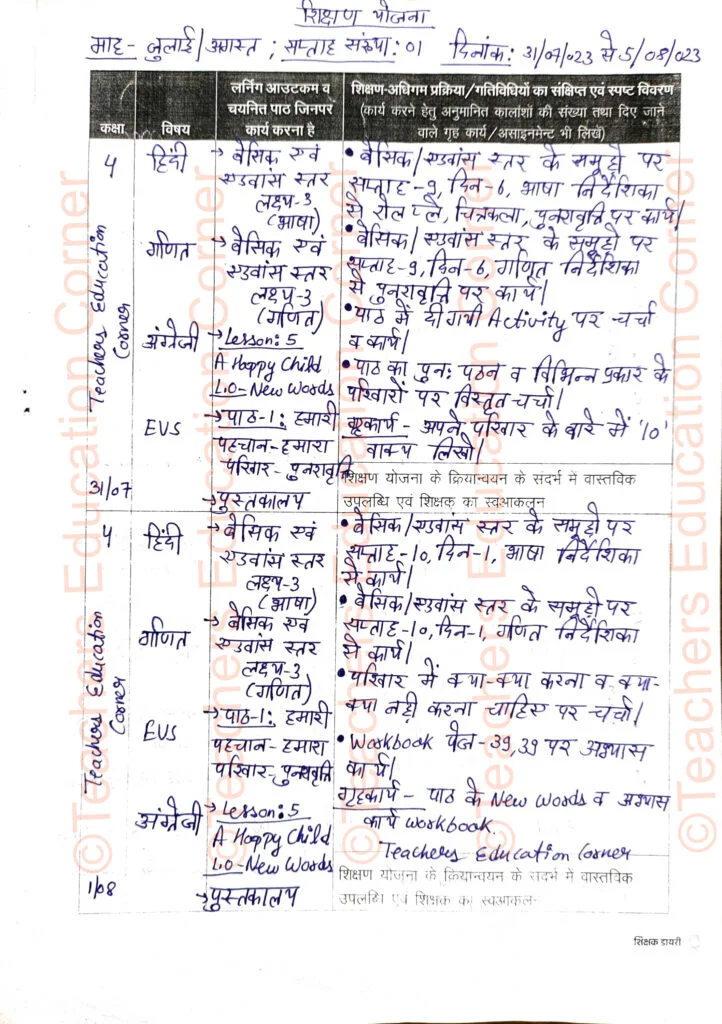 शिक्षण योजना
माह- जुलाई/अगस्त ; सप्ताह संख्या: 01 दिनांक: 31/07/023 से 5/08/023
कक्षा
विषय
लर्निंग आउटकम व
चयनित पाठ जिनपर
कार्य करना है
शिक्षण-अधिगम प्रक्रिया/गतिविधियों का संक्षिप्त एवं स्पष्ट विवरण
(कार्य करने हेतु अनुमानित कालांशों की संख्या तथा दिए जाने
वाले गृह कार्य/असाइनमेंट भी लिखें)
4
हिंदी
→ बेसिक एवं
एडवांस स्तर
लक्ष्य-3
(भाषा)
• बेसिक/एडवांस स्तर के समूहों पर
सप्ताह-9, दिन-6, भाषा निर्देशिका
से रोल प्ले, चित्रकला, पुनरावृत्ति पर कार्य।
गणित
→ बेसिक एवं
एडवांस स्तर
लक्ष्य-3
(गणित)
• बेसिक/एडवांस स्तर के समूहों पर
सप्ताह-9, दिन-6, गणित निर्देशिका
से पुनरावृत्ति पर कार्य।
अंग्रेजी
→ Lesson: 5
A Happy Child
L.O-New Words
• पाठ में दी गयी Activity पर चर्चा
व कार्य।
EVS
→ पाठ-1: हमारी
पहचान-हमारा
परिवार-पुनरावृत्ति
• पाठ का पुन: पठन व विभिन्न प्रकार के
परिवारों पर विस्तृत चर्चा।
गृहकार्य - अपने परिवार के बारे में '10'
वाक्य लिखो।
31/07
→ पुस्तकालय
शिक्षण योजना के क्रियान्वयन के संदर्भ में वास्तविक
उपलब्धि एवं शिक्षक का स्वआकलन
4
हिंदी
→ बेसिक एवं
एडवांस स्तर
लक्ष्य-3
(भाषा)
• बेसिक/एडवांस स्तर के समूहों पर
सप्ताह-10, दिन-1, भाषा निर्देशिका
से कार्य।
गणित
→ बेसिक एवं
एडवांस स्तर
लक्ष्य-3
(गणित)
• बेसिक/एडवांस स्तर के समूहों पर
सप्ताह-10, दिन-1, गणित निर्देशिका
से कार्य।
EVS
→ पाठ-1: हमारी
पहचान-हमारा
परिवार-पुनरावृत्ति
• परिवार में क्या-क्या करना व क्या-
क्या नहीं करना चाहिए पर चर्चा।
अंग्रेजी
→ Lesson: 5
A Happy Child
L.O-New Words
• Workbook पेज-39,39 पर अभ्यास
कार्य।
गृहकार्य - पाठ के New Words व अभ्यास
कार्य workbook.
Teachers Education Corner
1/08
→ पुस्तकालय
शिक्षण योजना के क्रियान्वयन के संदर्भ में वास्तविक
उपलब्धि एवं शिक्षक का स्वआकलन
शिक्षक डायरी
Teachers Education
Corner
Teachers Education
Corner
©Teachers Education Corner
©Teachers Education Corner
©Teachers Education Corner
©Teachers Education Corner
©Teachers Education Corner